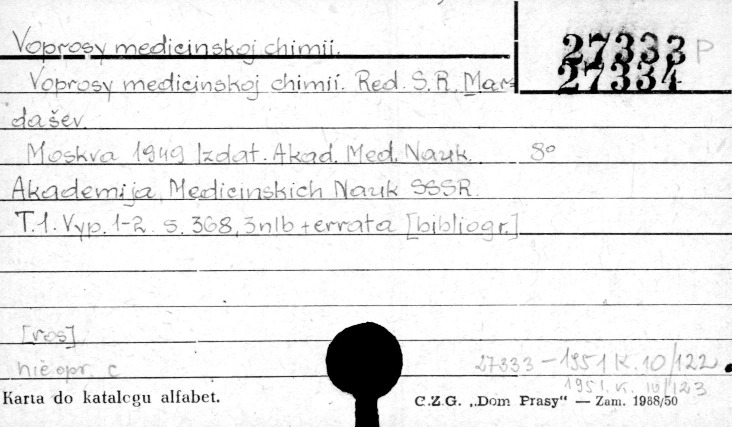 Voprosy medicinskoj chimii.
27333 P
27334
Voprosy medicinskoj chimii. Red. S. R. Mar-
dašev.
Moskva 1949 Izdat. Akad. Med. Nauk. 8º
Akademija Medicinskich Nauk SSSR.
T.1. Vyp. 1-2. s. 368, 3nlb + errata [bibliogr.]
[ros]
nieopr. c
27333 - 1951 K. 10/122
1951. K. 10/123
Karta do katalogu alfabet.
C.Z.G. „Dom Prasy“ — Zam. 1988/50